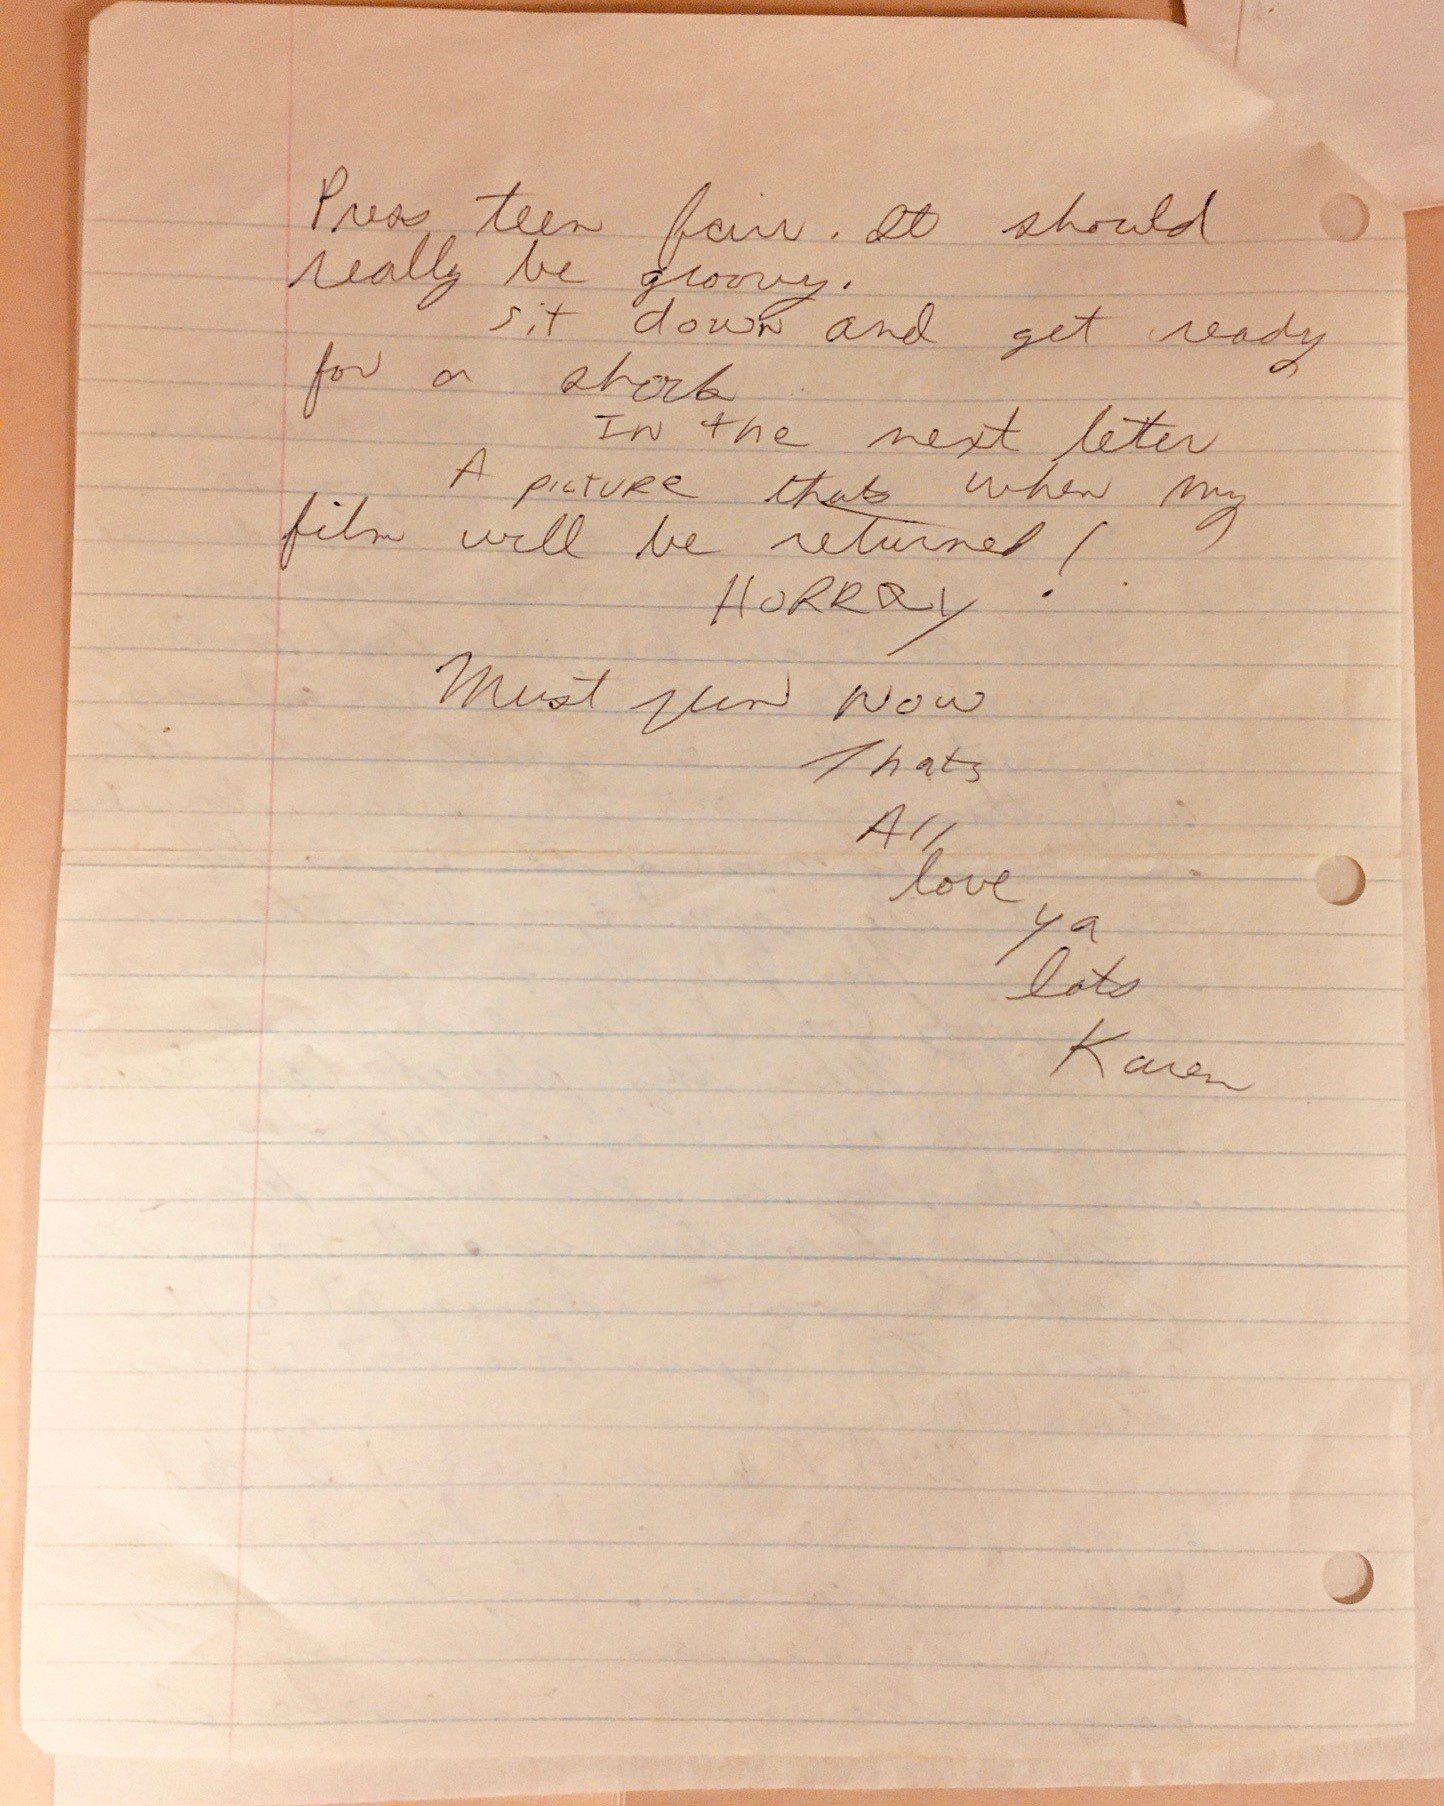 Press teen fair. It should
really be groovy.
sit down and get ready
for a shock
IN the next leter
A PICTURE thats when my
film will be returned!
HORRAY
Must run Now
Thats
All
love
ya
lots
Karen